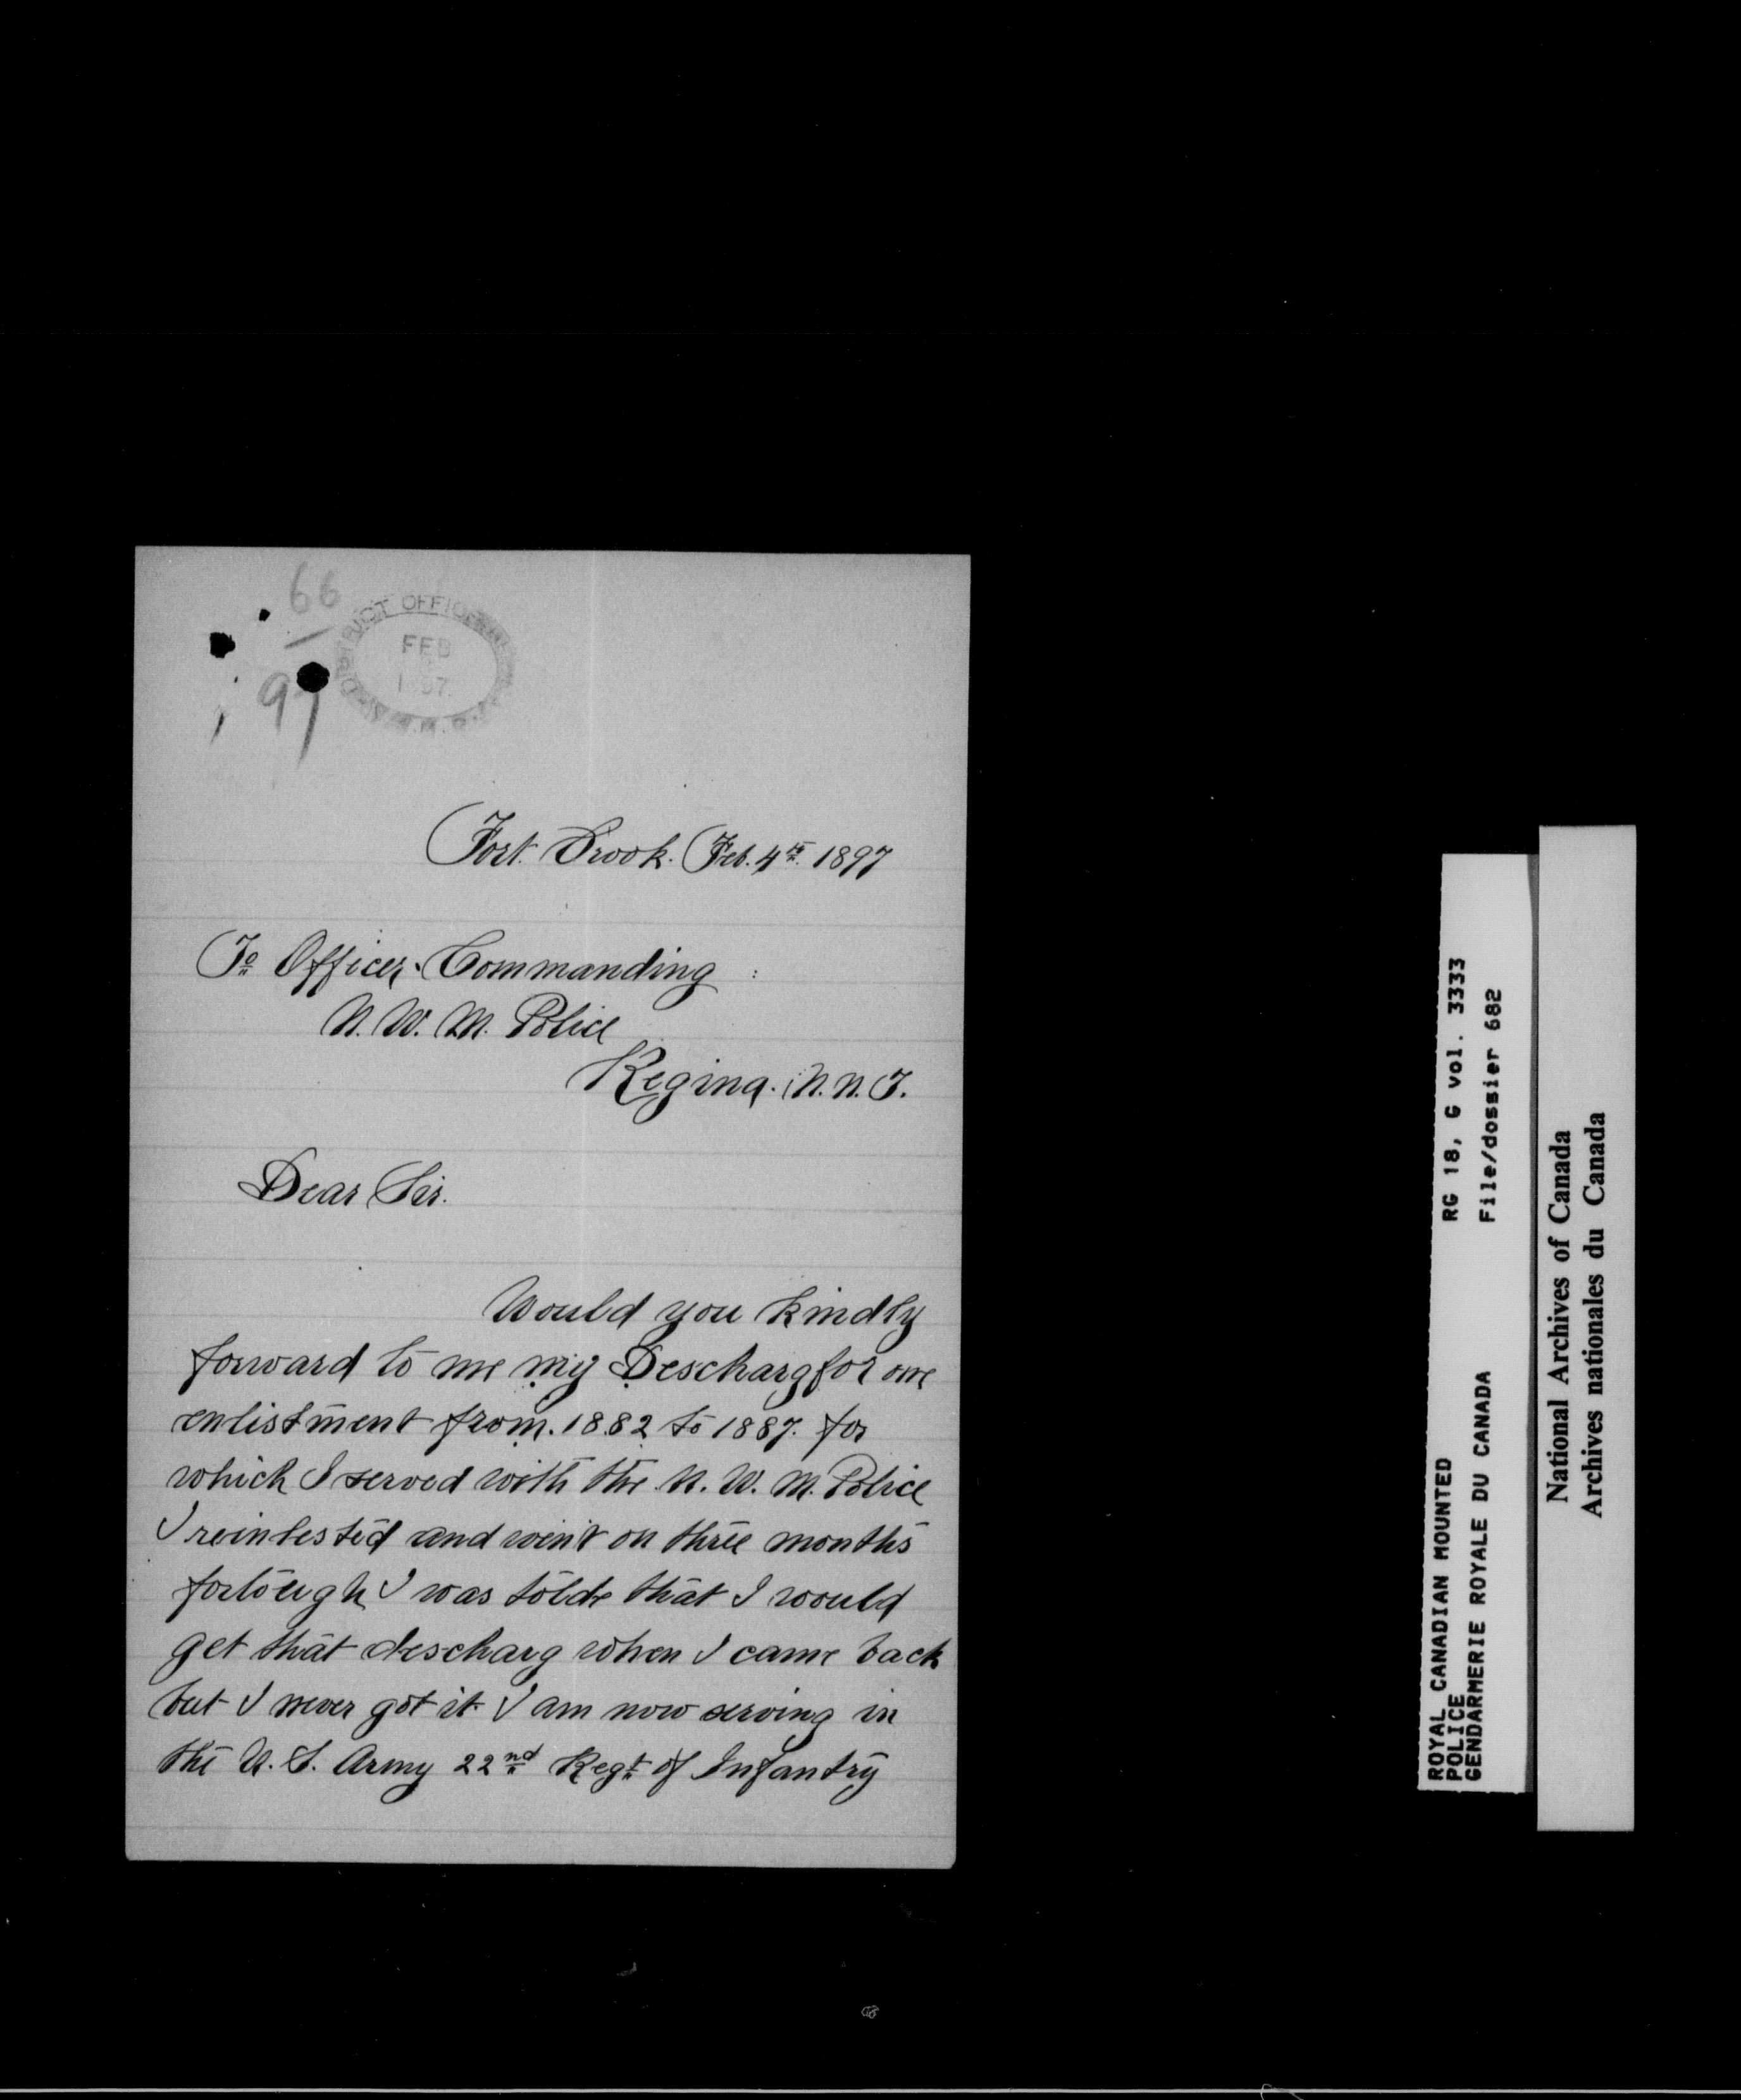 66
97
DISTRICT OFFICE
FEB
1897
Fort. Crook. Feb. 4th. 1897
To Officer. Commanding :
N. W. M. Police
Regina. N. N. T.
Dear Sir.
Would you kindly
forward to me my Descharg for one
enlistment from. 1882 to 1887. for
which I served with the N. W. M. Police
I reinlested and went on three months
forlough I was tolde that I would
get that descharg when I came back
but I never got it I am now serving in
the U. S. Army 22nd Regt of Infantry
ROYAL CANADIAN MOUNTED RG 18, G vol. 3333
POLICE
GENDARMERIE ROYALE DU CANADA File/dossier 682
National Archives of Canada
Archives nationales du Canada